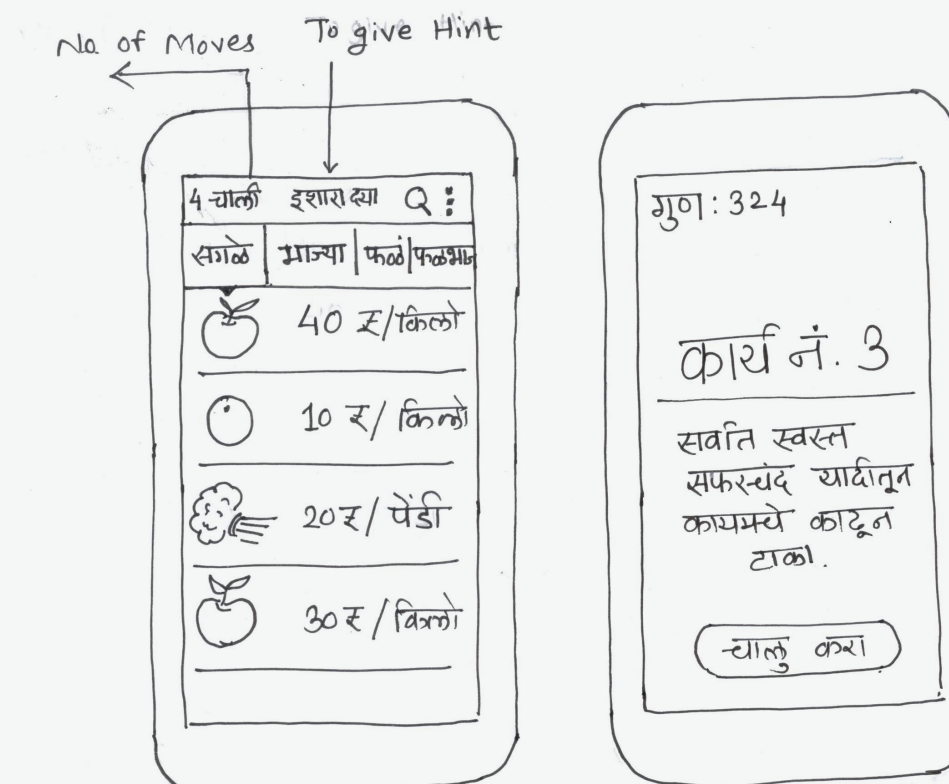 No. of Moves
To give Hint
4 चाली इशारा द्या
सगळे भाज्या फळं फळभाज
40 ₹/किलो
10 ₹/किलो
20₹/पेंडी
30₹/किलो
गुण: 324
कार्य नं. 3
सर्वात स्वस्त
सफरचंद यादीतून
कायमचे काढून
टाका.
चालु करा